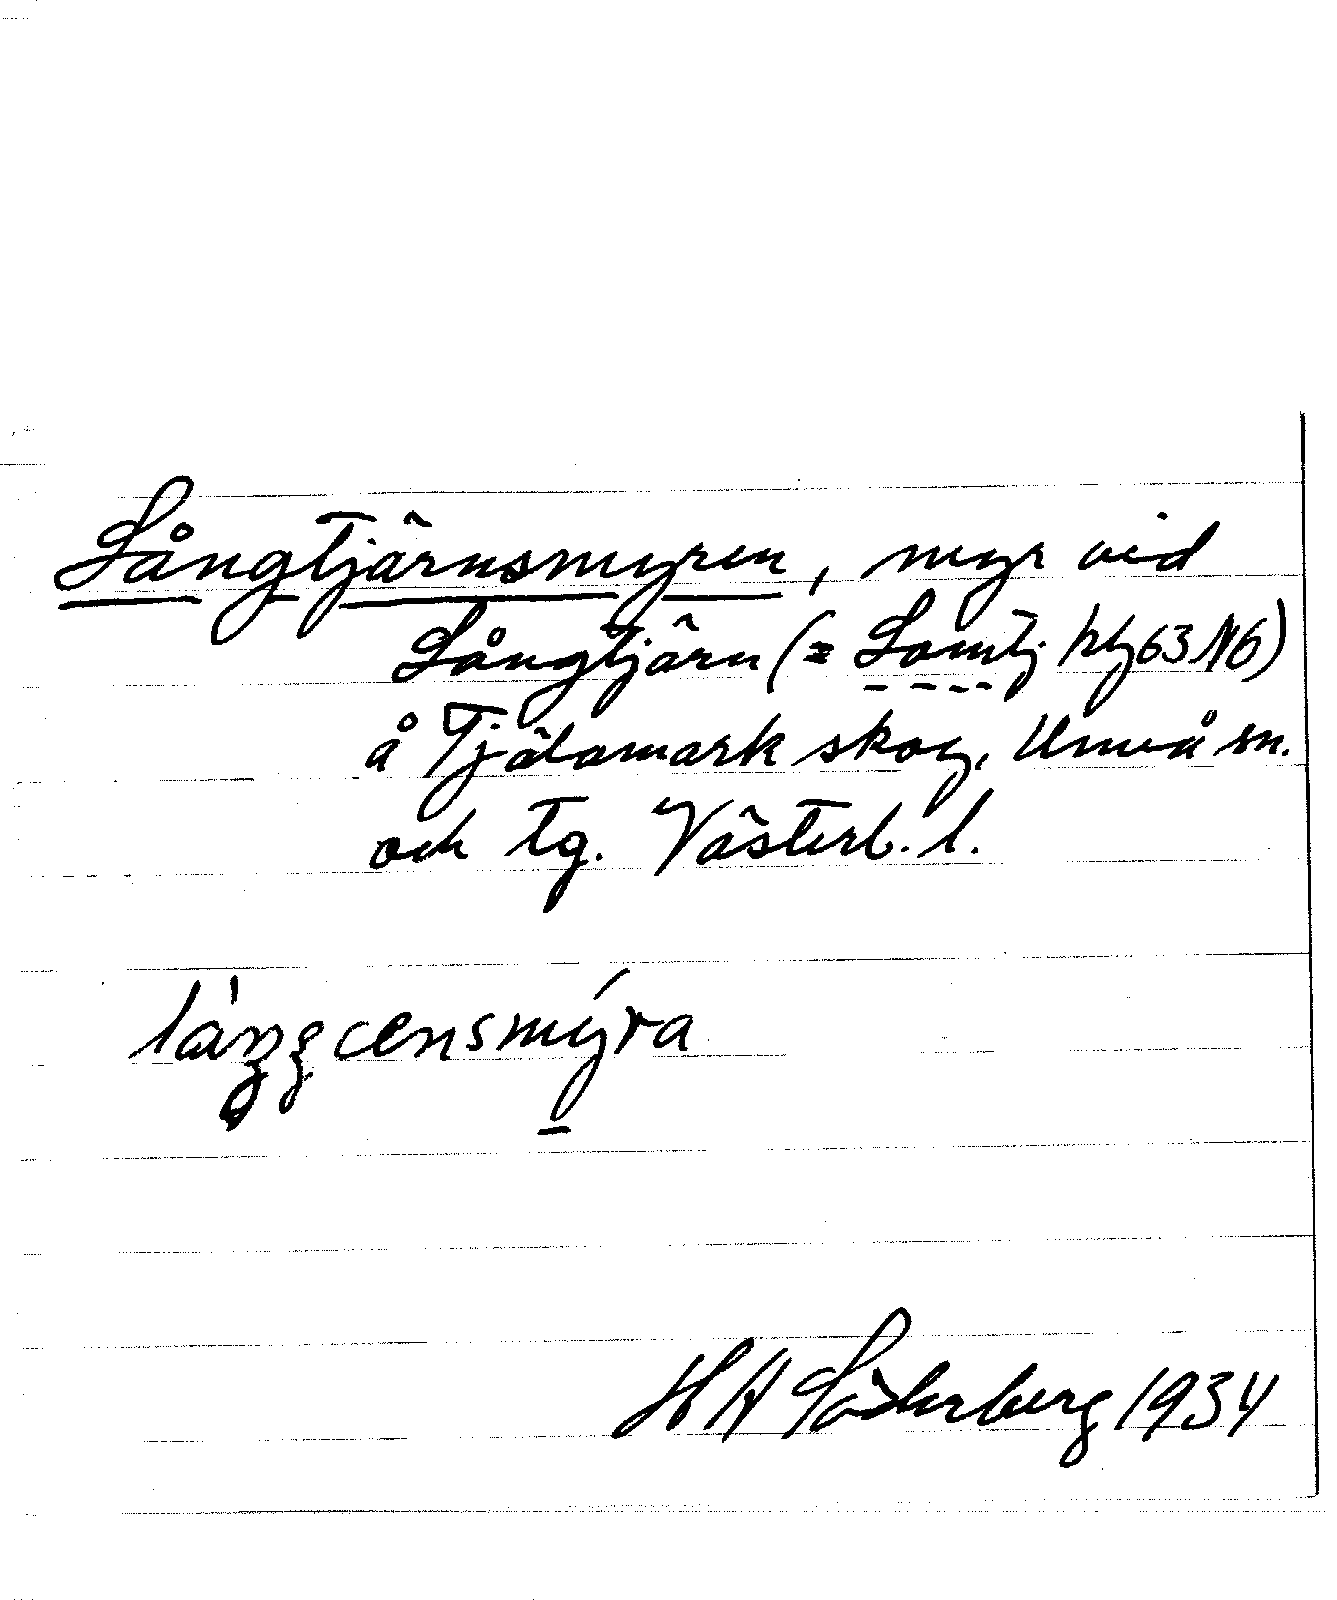 Långtjärnsmyren, myr vid
Långtjärn (= Lomtj kbl 63 N6)
å Tjälamark skog, Umeå sn.
och tg. Västerb. l.
H A Söderberg 1934